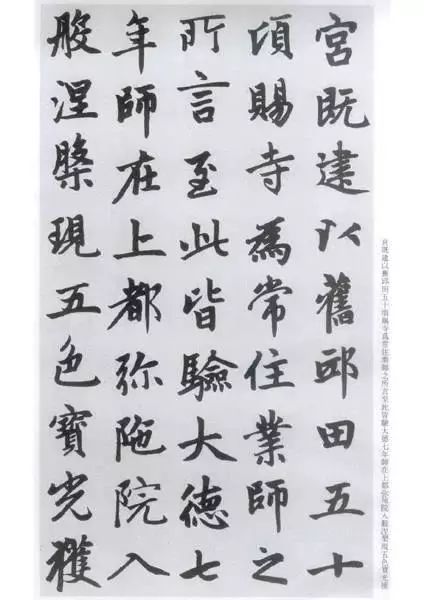 宮既建以舊邸田五十
頃賜寺為常住業師之
所言至此皆驗大德七
年師在上都弥陁院入
般涅槃現五色寶光獲
宮既建以舊邸田五十頃賜寺爲常住業師之所言至此皆驗大德七年師在上都弥陁院入般涅槃現五色寶光獲